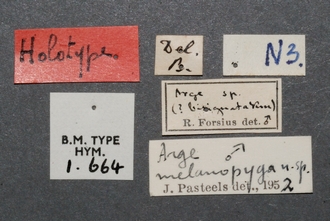 Holotype.
Del.
B.
N3.
Arge sp.
R. Forsius det. ♂
B.M. TYPE
HYM.
1.664
Arge ♂
melanopyga n.sp.
J. Pasteels det., 1952